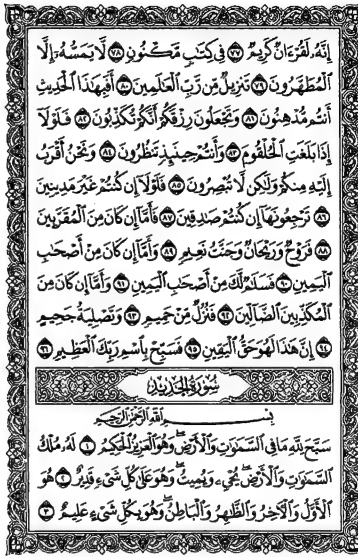 إِنَّهُۥ لَقُرْءَانٌ كَرِيمٌ ٧٧ فِى كِتَٰبٍ مَّكْنُونٍ ٧٨ لَّا يَمَسُّهُۥٓ إِلَّا
ٱلْمُطَهَّرُونَ ٧٩ تَنزِيلٌ مِّن رَّبِّ ٱلْعَٰلَمِينَ ٨٠ أَفَبِهَٰذَا ٱلْحَدِيثِ
أَنتُم مُّدْهِنُونَ ٨١ وَتَجْعَلُونَ رِزْقَكُمْ أَنَّكُمْ تُكَذِّبُونَ ٨٢ فَلَوْلَآ
إِذَا بَلَغَتِ ٱلْحُلْقُومَ ٨٣ وَأَنتُمْ حِينَئِذٍ تَنظُرُونَ ٨٤ وَنَحْنُ أَقْرَبُ
إِلَيْهِ مِنكُمْ وَلَٰكِن لَّا تُبْصِرُونَ ٨٥ فَلَوْلَآ إِن كُنتُمْ غَيْرَ مَدِينِينَ
٨٦ تَرْجِعُونَهَآ إِن كُنتُمْ صَٰدِقِينَ ٨٧ فَأَمَّآ إِن كَانَ مِنَ ٱلْمُقَرَّبِينَ
٨٨ فَرَوْحٌ وَرَيْحَانٌ وَجَنَّتُ نَعِيمٍ ٨٩ وَأَمَّآ إِن كَانَ مِنْ أَصْحَٰبِ
ٱلْيَمِينِ ٩٠ فَسَلَٰمٌ لَّكَ مِنْ أَصْحَٰبِ ٱلْيَمِينِ ٩١ وَأَمَّآ إِن كَانَ مِنَ
ٱلْمُكَذِّبِينَ ٱلضَّآلِّينَ ٩٢ فَنُزُلٌ مِّنْ حَمِيمٍ ٩٣ وَتَصْلِيَةُ جَحِيمٍ
٩٤ إِنَّ هَٰذَا لَهُوَ حَقُّ ٱلْيَقِينِ ٩٥ فَسَبِّحْ بِٱسْمِ رَبِّكَ ٱلْعَظِيمِ ٩٦
سُورَةُ الحَدِيد
بِسْمِ ٱللَّهِ ٱلرَّحْمَٰنِ ٱلرَّحِيمِ
سَبَّحَ لِلَّهِ مَا فِى ٱلسَّمَٰوَٰتِ وَٱلْأَرْضِ ۖ وَهُوَ ٱلْعَزِيزُ ٱلْحَكِيمُ ١ لَهُۥ مُلْكُ
ٱلسَّمَٰوَٰتِ وَٱلْأَرْضِ ۖ يُحْىِۦ وَيُمِيتُ ۖ وَهُوَ عَلَىٰ كُلِّ شَىْءٍ قَدِيرٌ ٢ هُوَ
ٱلْأَوَّلُ وَٱلْءَاخِرُ وَٱلظَّٰهِرُ وَٱلْبَاطِنُ ۖ وَهُوَ بِكُلِّ شَىْءٍ عَلِيمٌ ٣